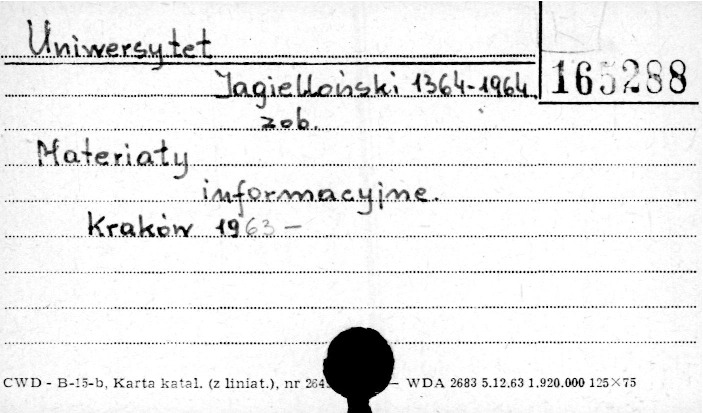 Uniwersytet
Jagielloński 1364-1964
165288
zob.
Materiały
informacyjne.
Kraków 1963 —
CWD - B-15-b, Karta katal. (z liniat.), nr 264 — WDA 2683 5.12.63 1.920.000 125×75